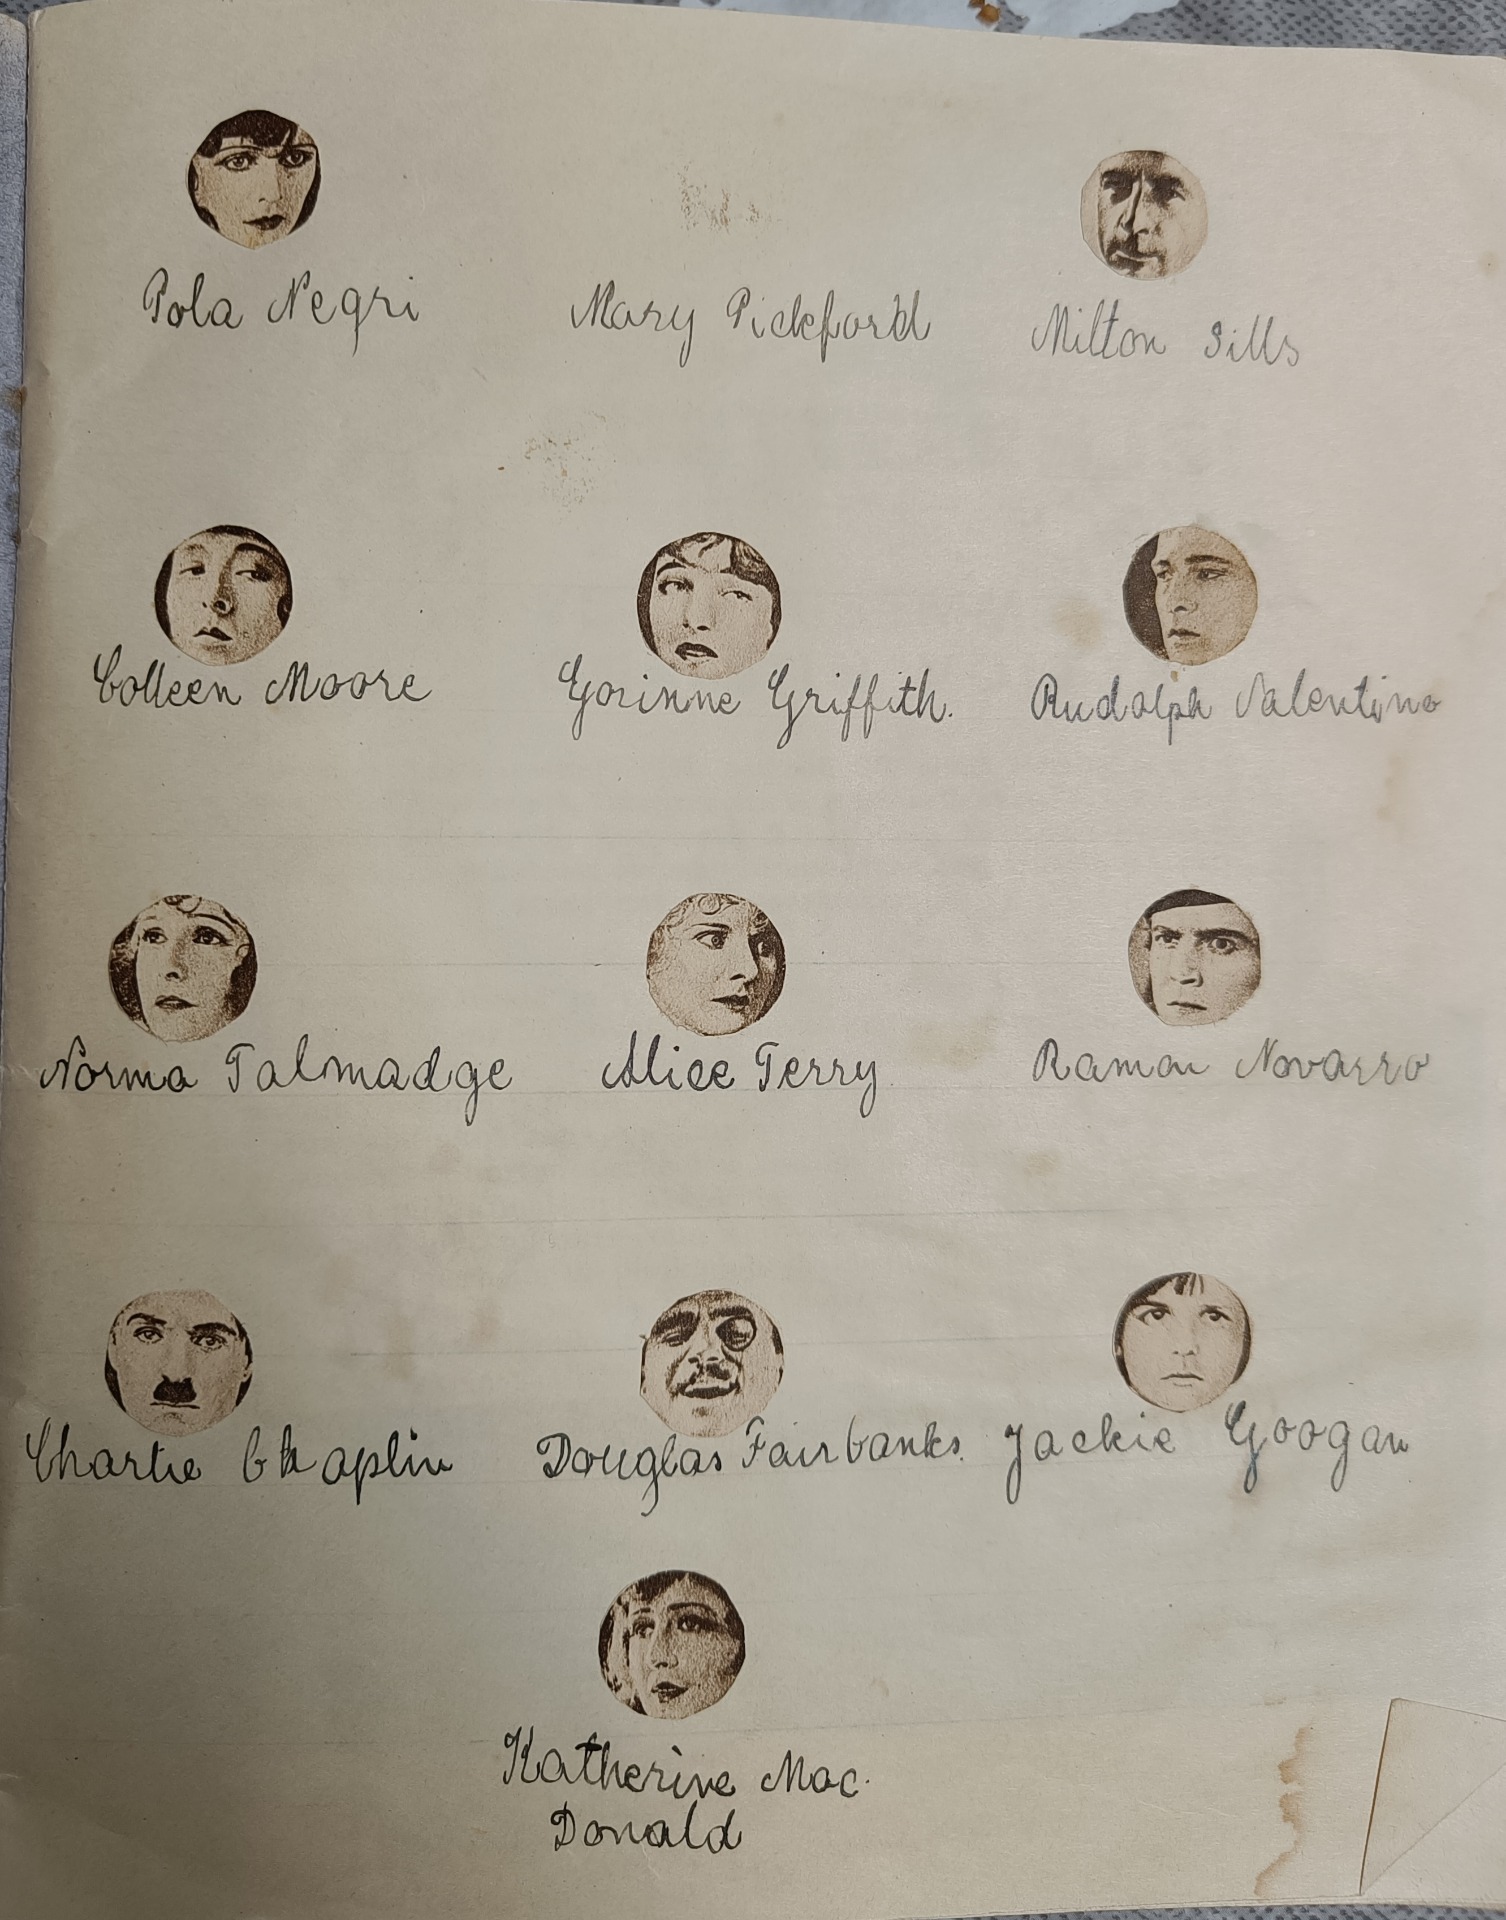 Pola Negri
Mary Pickford
Milton Sills
Colleen Moore
Gorinne Griffith.
Rudolph Valentino
Norma Talmadge
Alice Terry
Ramon Novarro
Charlie Chaplin
Douglas Fairbanks.
Jackie Googan
Katherine Mac.
Donald